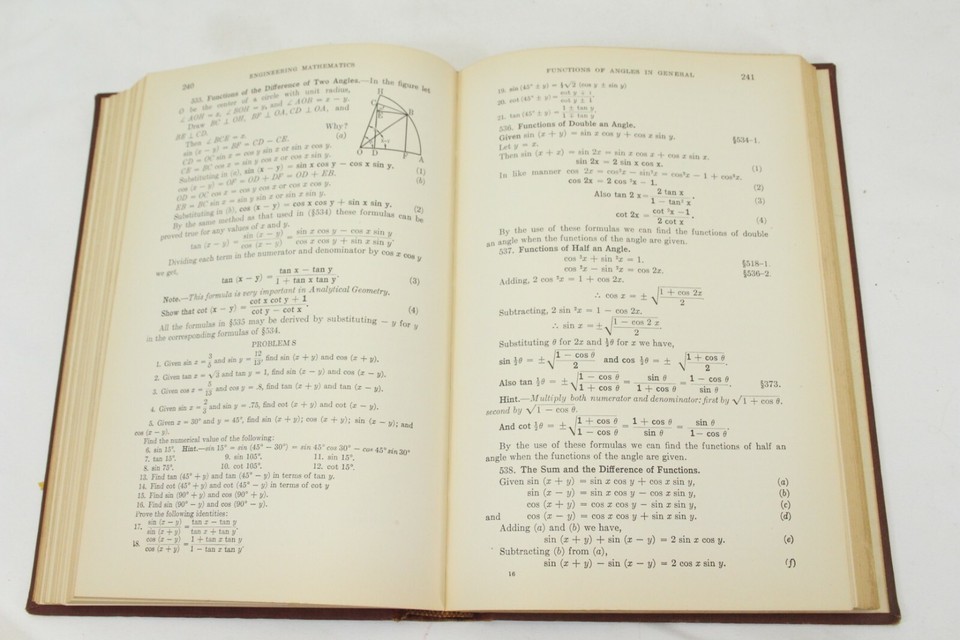 240 ENGINEERING MATHEMATICS
535. Functions of the Difference of Two Angles.—In the figure let
O be the center of a circle with unit radius,
∠ AOH = x, ∠ BOH = y, and ∠ AOB = x − y.
Draw BC ⊥ OH, BF ⊥ OA, CD ⊥ OA, and
BE ⊥ CD.
Then ∠ BCE = x. Why?
sin (x − y) = BF = CD − CE. (a)
CD = OC sin x = cos y sin x or sin x cos y.
CE = BC cos x = sin y cos x or cos x sin y.
Substituting in (a), sin (x − y) = sin x cos y − cos x sin y. (1)
cos (x − y) = OF = OD + DF = OD + EB. (b)
OD = OC cos x = cos y cos x or cos x cos y.
EB = BC sin x = sin y sin x or sin x sin y.
Substituting in (b), cos (x − y) = cos x cos y + sin x sin y. (2)
By the same method as that used in (§534) these formulas can be
proved true for any values of x and y.
tan (x − y) = sin (x − y) / cos (x − y) = sin x cos y − cos x sin y / cos x cos y + sin x sin y.
Dividing each term in the numerator and denominator by cos x cos y
we get,
tan (x − y) = tan x − tan y / 1 + tan x tan y. (3)
Note.—This formula is very important in Analytical Geometry.
Show that cot (x − y) = cot x cot y + 1 / cot y − cot x. (4)
All the formulas in §535 may be derived by substituting − y for y
in the corresponding formulas of §534.
PROBLEMS
1. Given sin x = 3/5 and sin y = 12/13, find sin (x + y) and cos (x + y).
2. Given tan x = √2 and tan y = 1, find sin (x − y) and cos (x − y).
3. Given cos x = 5/13 and cos y = .8, find tan (x + y) and tan (x − y).
4. Given sin x = 2/3 and sin y = .75, find cot (x + y) and cot (x − y).
5. Given x = 30° and y = 45°, find sin (x + y); cos (x + y); sin (x − y); and
cos (x − y).
Find the numerical value of the following:
6. sin 15°. Hint.—sin 15° = sin (45° − 30°) = sin 45° cos 30° − cos 45° sin 30°
7. tan 15°. 9. sin 105°. 11. sin 15°.
8. sin 75°. 10. cot 105°. 12. cot 15°.
13. Find tan (45° + y) and tan (45° − y) in terms of tan y.
14. Find cot (45° + y) and cot (45° − y) in terms of cot y
15. Find sin (90° + y) and cos (90° + y).
16. Find sin (90° − y) and cos (90° − y).
Prove the following identities:
17. sin (x − y) / sin (x + y) = tan x − tan y / tan x + tan y.
18. cos (x − y) / cos (x + y) = 1 + tan x tan y / 1 − tan x tan y
H
C
E
B
O D F A
FUNCTIONS OF ANGLES IN GENERAL 241
19. sin (45° ± y) = ½√2 (cos y ± sin y)
20. cot (45° ± y) = cot y ∓ 1 / cot y ± 1
21. tan (45° ± y) = 1 ± tan y / 1 ∓ tan y
536. Functions of Double an Angle.
Given sin (x + y) = sin x cos y + cos x sin y. §534-1.
Let y = x.
Then sin (x + x) = sin 2x = sin x cos x + cos x sin x.
sin 2x = 2 sin x cos x. (1)
In like manner cos 2x = cos²x − sin²x = cos²x − 1 + cos²x.
cos 2x = 2 cos ²x − 1. (2)
Also tan 2 x = 2 tan x / 1 − tan² x. (3)
cot 2x = cot ²x − 1 / 2 cot x. (4)
By the use of these formulas we can find the functions of double
an angle when the functions of the angle are given.
537. Functions of Half an Angle.
cos ²x + sin ²x = 1. §518-1.
cos ²x − sin ²x = cos 2x. §536-2.
Adding, 2 cos ²x = 1 + cos 2x.
∴ cos x = ± √(1 + cos 2x / 2)
Subtracting, 2 sin ²x = 1 − cos 2x.
∴ sin x = ± √(1 − cos 2 x / 2)
Substituting θ for 2x and ½θ for x we have,
sin ½θ = ± √(1 − cos θ / 2) and cos ½θ = ± √(1 + cos θ / 2).
Also tan ½θ = ± √(1 − cos θ / 1 + cos θ) = sin θ / 1 + cos θ = 1 − cos θ / sin θ. §373.
Hint.—Multiply both numerator and denominator: first by √1 + cos θ,
second by √1 − cos θ.
And cot ½θ = ± √(1 + cos θ / 1 − cos θ) = 1 + cos θ / sin θ = sin θ / 1 − cos θ
By the use of these formulas we can find the functions of half an
angle when the functions of the angle are given.
538. The Sum and the Difference of Functions.
Given sin (x + y) = sin x cos y + cos x sin y, (a)
sin (x − y) = sin x cos y − cos x sin y, (b)
cos (x + y) = cos x cos y − sin x sin y, (c)
and cos (x − y) = cos x cos y + sin x sin y. (d)
Adding (a) and (b) we have,
sin (x + y) + sin (x − y) = 2 sin x cos y. (e)
Subtracting (b) from (a),
sin (x + y) − sin (x − y) = 2 cos x sin y. (f)
16